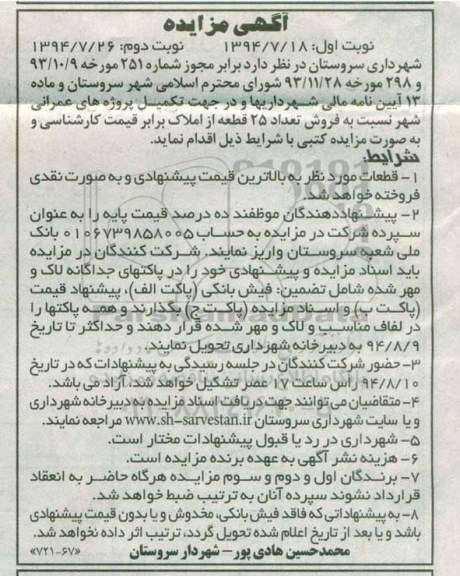 آگهی مزایده
نوبت اول: ۱۳۹۴/۷/۱۸ نوبت دوم: ۱۳۹۴/۷/۲۶
شهرداری سروستان در نظر دارد برابر مجوز شماره ۲۵۱ مورخه ۹۳/۱۰/۹
و ۲۹۸ مورخه ۹۳/۱۱/۲۸ شورای محترم اسلامی شهر سروستان و ماده
۱۳ آیین نامه مالی شهرداریها و در جهت تکمیل پروژه های عمرانی
شهر نسبت به فروش تعداد ۲۵ قطعه از املاک برابر قیمت کارشناسی و
به صورت مزایده کتبی با شرایط ذیل اقدام نماید.
شرایط:
۱- قطعات مورد نظر به بالاترین قیمت پیشنهادی و به صورت نقدی
فروخته خواهد شد.
۲- پیشنهاددهندگان موظفند ده درصد قیمت پایه را به عنوان
سپرده شرکت در مزایده به حساب ۰۱۰۶۷۳۹۸۵۸۰۰۵ بانک
ملی شعبه سروستان واریز نمایند. شرکت کنندگان در مزایده
باید اسناد مزایده و پیشنهادی خود را در پاکتهای جداگانه لاک و
مهر شده شامل تضمین: فیش بانکی (پاکت الف)، پیشنهاد قیمت
(پاکت ب) و اسناد مزایده (پاکت ج) بگذارند و همه پاکتها را
در لفاف مناسب و لاک و مهر شده قرار دهند و حداکثر تا تاریخ
۹۴/۸/۹ به دبیرخانه شهرداری تحویل نمایند.
۳- حضور شرکت کنندگان در جلسه رسیدگی به پیشنهادات که در تاریخ
۹۴/۸/۱۰ رأس ساعت ۱۷ عصر تشکیل خواهد شد، آزاد می باشد.
۴- متقاضیان می توانند جهت دریافت اسناد مزایده به دبیرخانه شهرداری
و یا سایت شهرداری سروستان www.sh-sarvestan.ir مراجعه نمایند.
۵- شهرداری در رد یا قبول پیشنهادات مختار است.
۶- هزینه نشر آگهی به عهده برنده مزایده است.
۷- برندگان اول و دوم و سوم مزایده هرگاه حاضر به انعقاد
قرارداد نشوند سپرده آنان به ترتیب ضبط خواهد شد.
۸- به پیشنهاداتی که فاقد فیش بانکی، مخدوش و یا بدون قیمت پیشنهادی
باشد و یا بعد از تاریخ اعلام شده تحویل گردد، ترتیب اثر داده نخواهد شد.
محمدحسین هادی پور- شهردار سروستان «۷۲۱-۶۷»